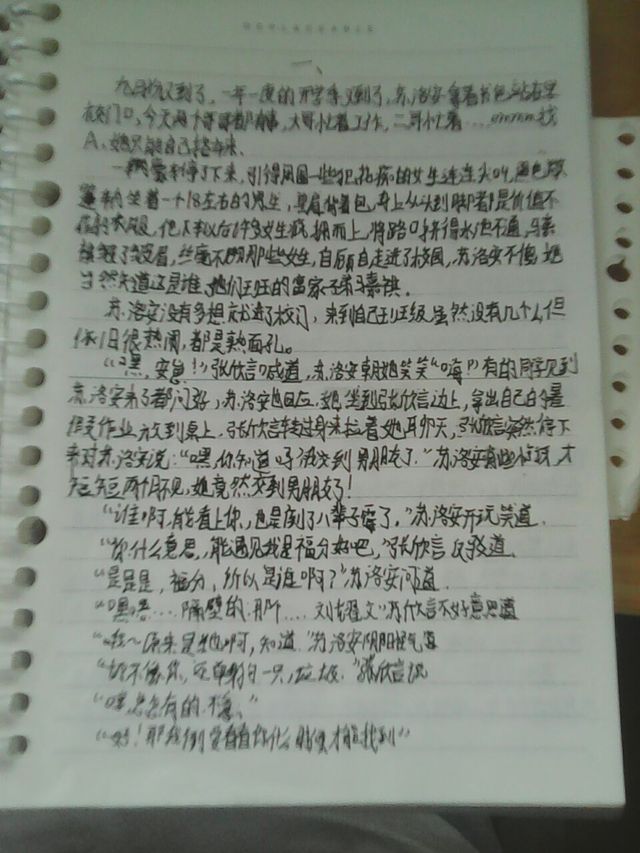 一、
九月份又到了,一年一度的开学季又到了,苏洛安拿着书包站在学
校门口,今天两个哥哥都有事,大哥忙着工作,二哥忙着……emmm找
A,她只能自己搭车来。
一辆车停了下来,引得周围一些犯花痴的女生连连尖叫,黑色
坐着一个18左右的男生,身上从头到脚都是价值不
衣服,他下车以后许多女生蜂拥而上,将路口挤得水泄不通,马嘉
祺,丝毫不顾那些女生,自顾自走进了校园,苏洛安不傻,她
当然知道这是谁,她们班的富家子弟马嘉祺.
苏洛安没有多想就进了校门,来到自己班级虽然没有几个人但
依旧很热闹,都是熟面孔。
“嘿,安安!”张欣言喊道,苏洛安朝她笑笑“嗨”有的同学见到
苏洛安来了都问好,苏洛安也回应,她坐到张欣言边上,拿出自己的暑
假作业放到桌上,张欣言转过身来拉着她聊天,张欣言突然停下
来对苏洛安说:“嘿,你知道吗我交到男朋友了.”苏洛安有些,才
短短两个月不见,她竟然交到男朋友了!
“谁啊,能看上你,也是倒了八辈子霉了,”苏洛安开玩笑道.
“你什么意思,能遇见我是福分好吧,”张欣言反驳道.
“是是是,福分,所以是谁啊?”苏洛安问道.
“嘿嘿....隔壁的.那个....刘耀文”张欣言不好意思道
“哦~原来是他啊,知道.”苏洛安阴阳怪气道
“切不像你,还单身狗一只,”张欣言说
“嘿,总会有的.不急.”
“好!那我倒要看看你什么时候才能找到”